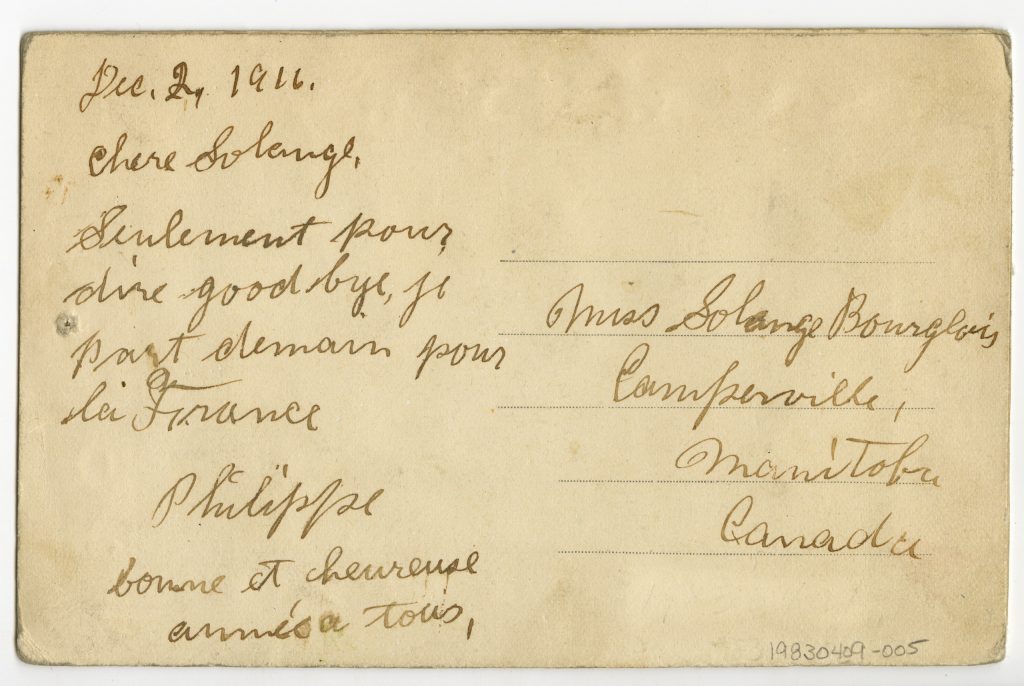 Dec. 2, 1916.
chere Solange,
Seulement pour
dire good bye, je
part demain pour
la France
Philippe
bonne et cheureuse
annéea tous,
Miss Solange Bourglois
Camperville,
Manitoba
Canada
19830409-005